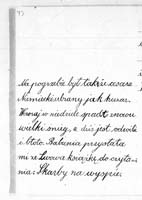 Na pogrzebie był także wasz
ubrany jak
Wczoraj w niedzielę spadł znowu
wielki śnieg, a dziś jest odwilż
i błoto. Babunia przysłała
mi ze Lwowa książkę do czyta-
nia: Skarby na wyspie.